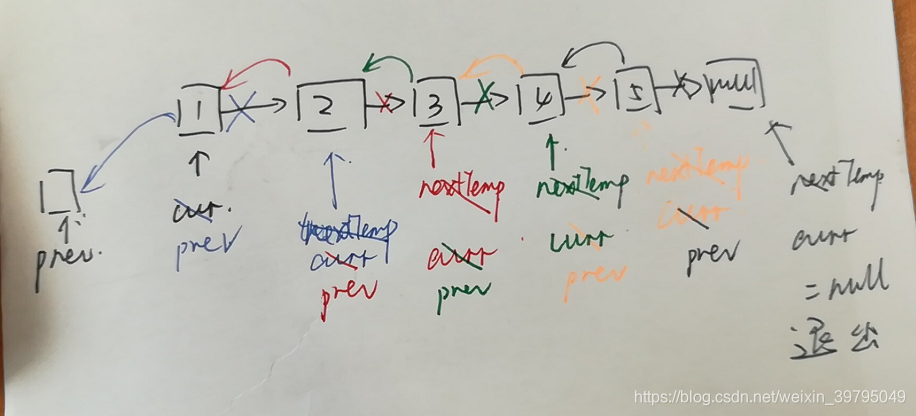 1 2 3 4 5 null
prev.
curr.
prev
nextTemp
curr
prev
nextTemp
curr
prev
nextTemp
curr
prev
nextTemp
curr
prev
nextTemp
curr
= null
退出
https://blog.csdn.net/weixin_39795049